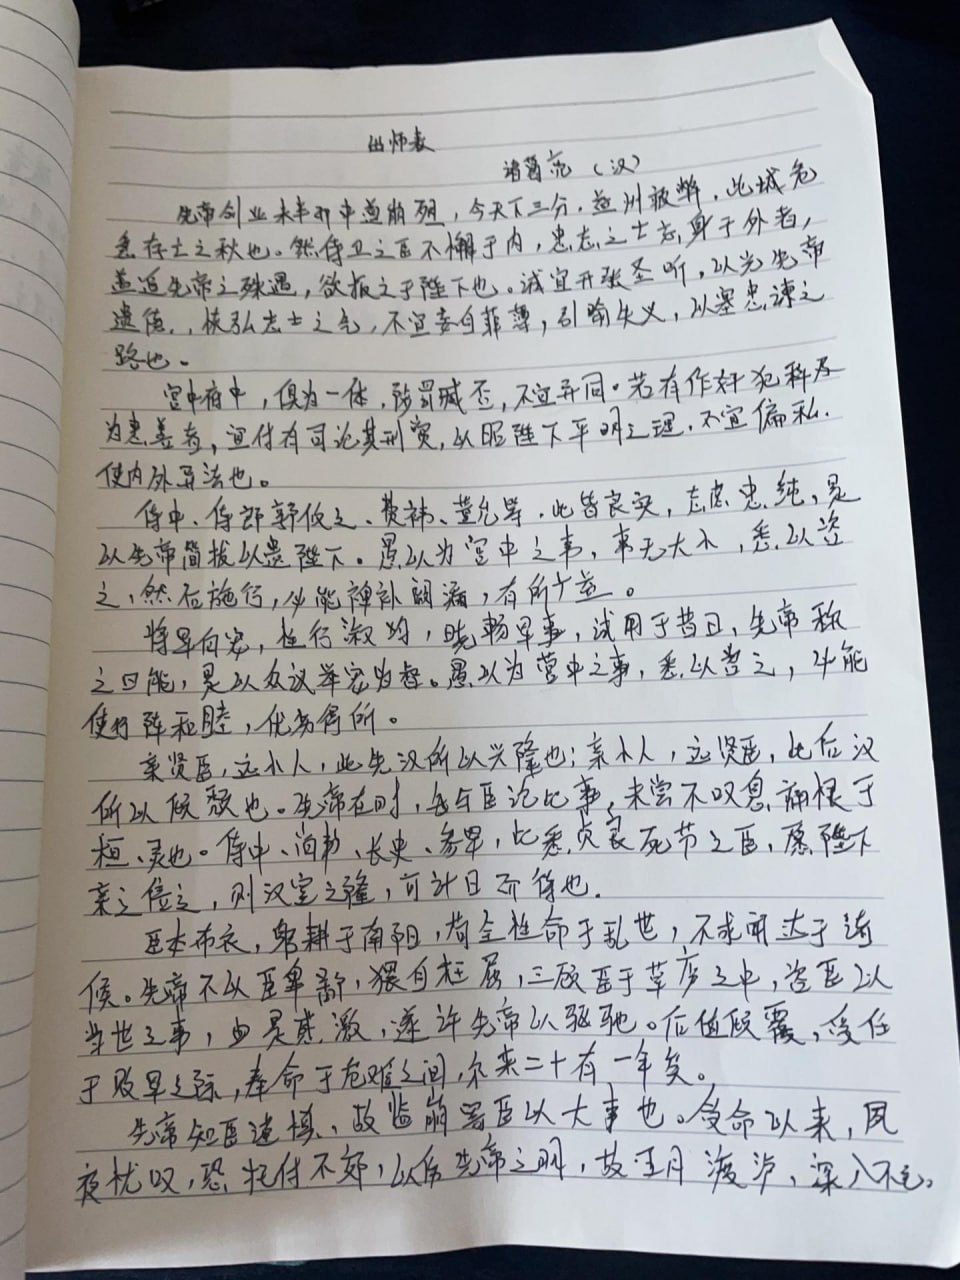 出师表
诸葛亮（汉）
先帝创业未半而中道崩殂，今天下三分，益州疲弊，此诚危
急存亡之秋也。然侍卫之臣不懈于内，忠志之士忘身于外者，
盖追先帝之殊遇，欲报之于陛下也。诚宜开张圣听，以光先帝
遗德，恢弘志士之气，不宜妄自菲薄，引喻失义，以塞忠谏之
路也。
宫中府中，俱为一体，陟罚臧否，不宜异同。若有作奸犯科及
为忠善者，宜付有司论其刑赏，以昭陛下平明之理，不宜偏私，
使内外异法也。
侍中、侍郎郭攸之、费祎、董允等，此皆良实，志虑忠纯，是
以先帝简拔以遗陛下。愚以为宫中之事，事无大小，悉以咨
之，然后施行，必能裨补阙漏，有所广益。
将军向宠，性行淑均，晓畅军事，试用于昔日，先帝称
之曰能，是以众议举宠为督。愚以为营中之事，悉以咨之，必能
使行阵和睦，优劣得所。
亲贤臣，远小人，此先汉所以兴隆也；亲小人，远贤臣，此后汉
所以倾颓也。先帝在时，每与臣论此事，未尝不叹息痛恨于
桓、灵也。侍中、尚书、长史、参军，此悉贞良死节之臣，愿陛下
亲之信之，则汉室之隆，可计日而待也。
臣本布衣，躬耕于南阳，苟全性命于乱世，不求闻达于诸
候。先帝不以臣卑鄙，猥自枉屈，三顾臣于草庐之中，咨臣以
当世之事，由是感激，遂许先帝以驱驰。后值倾覆，受任
于败军之际，奉命于危难之间，尔来二十有一年矣。
先帝知臣谨慎，故临崩寄臣以大事也。受命以来，夙
夜忧叹，恐托付不效，以伤先帝之明，故五月渡泸，深入不毛。